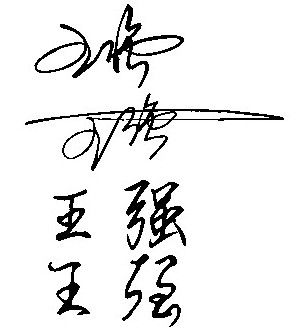 王强
王强
王强
王强